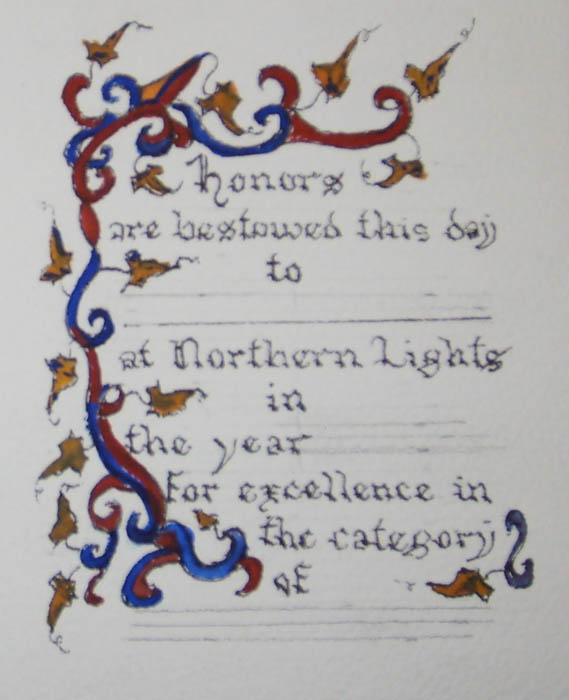 Honors
are bestowed this day
to
at Northern Lights
in
the year
for excellence in
the category
of